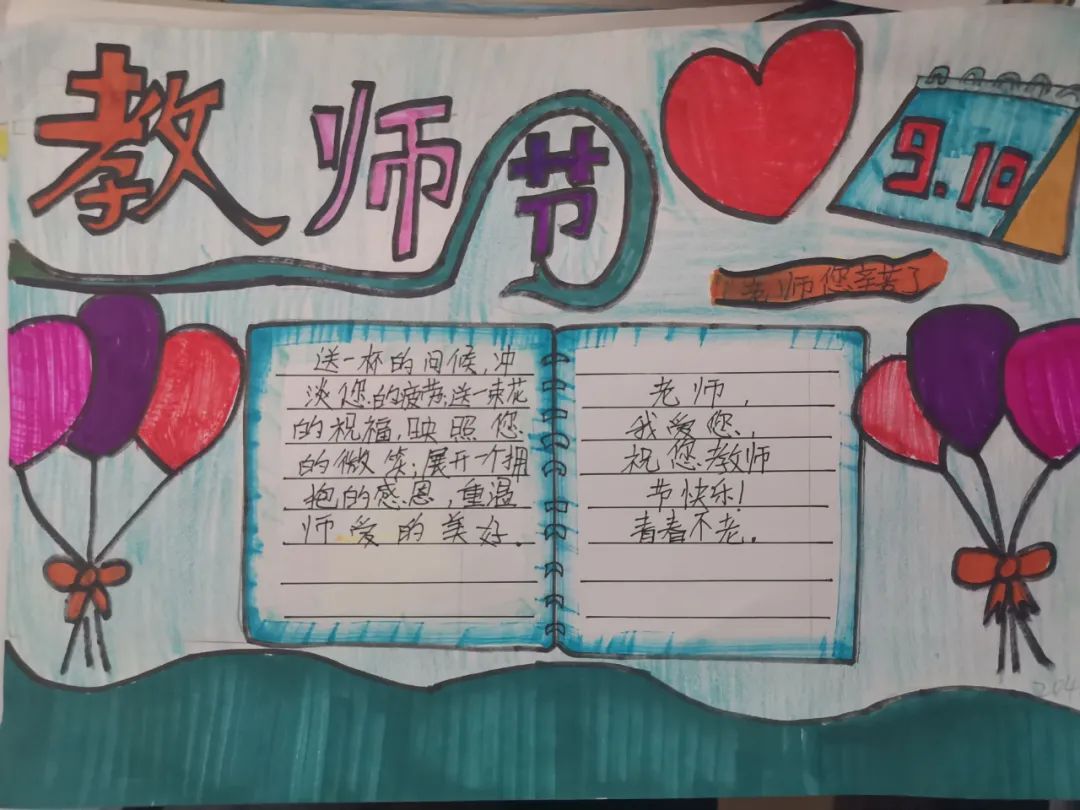 教师节
9.10
老师您辛苦了
送一杯的问候,冲
淡您的疲劳;送一束花
的祝福,映照您
的微笑;展开一个拥
抱的感恩,重温
师爱的美好。
老师,
我爱您,
祝您教师
节快乐!
青春不老。
204